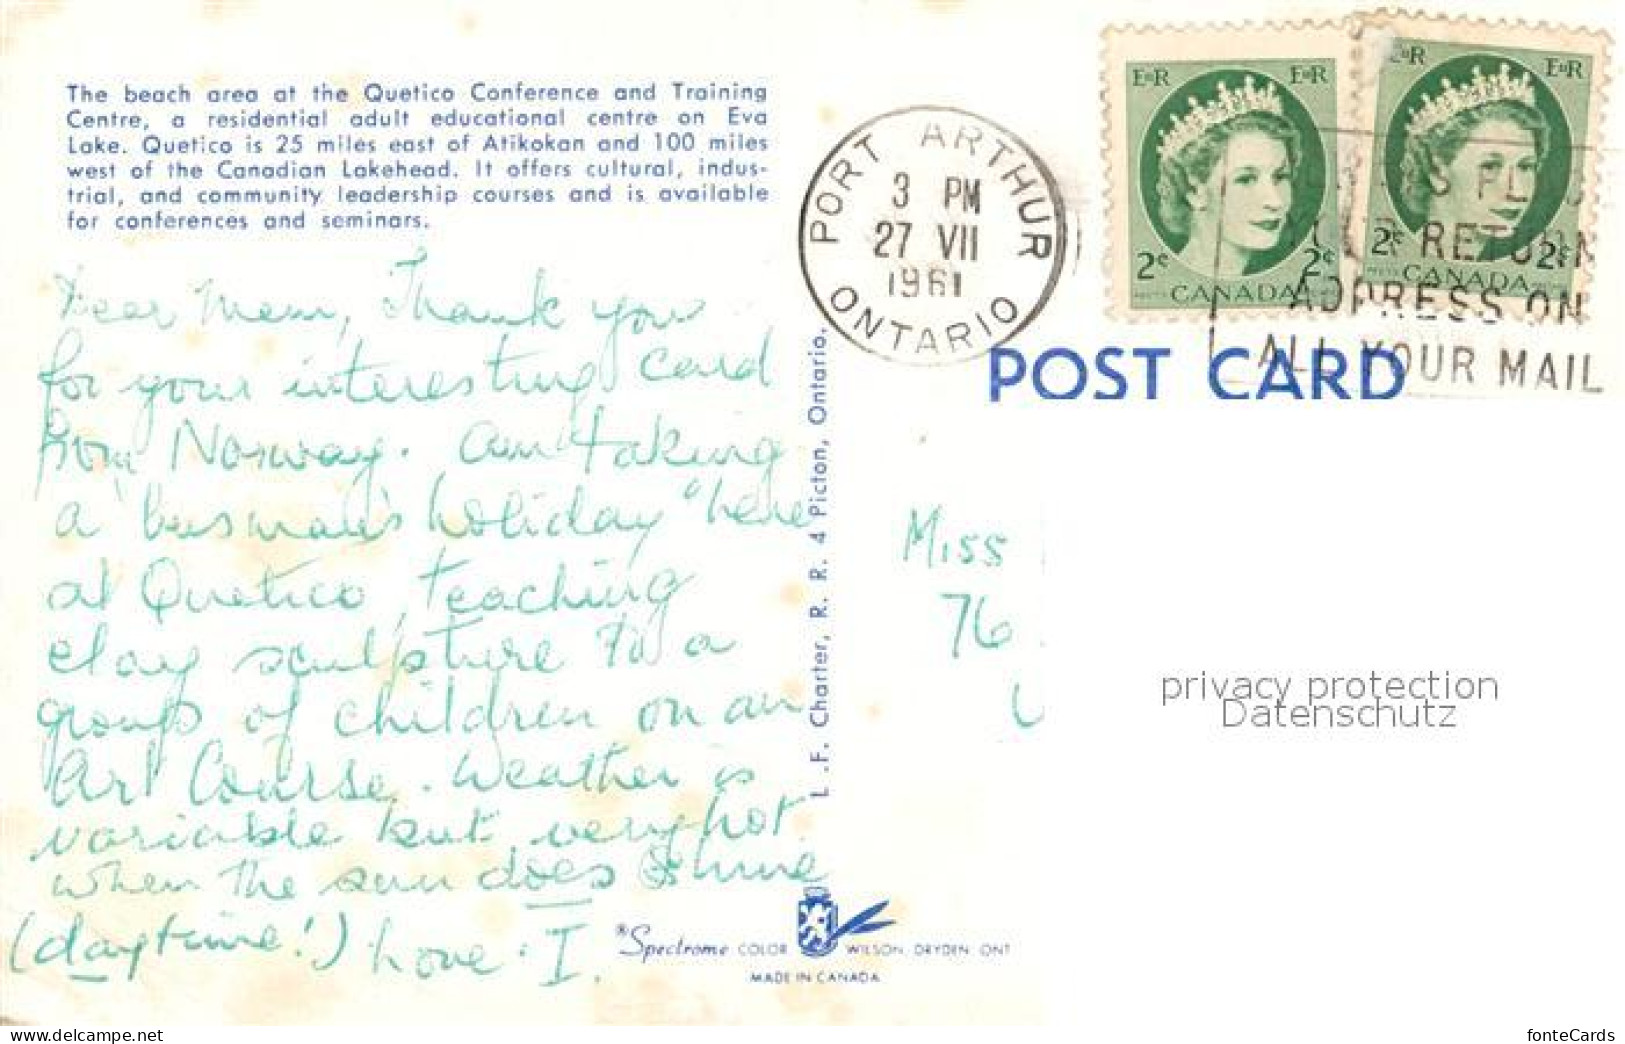 The beach area at the Quetico Conference and Training
Centre, a residential adult educational centre on Eva
Lake. Quetico is 25 miles east of Atikokan and 100 miles
west of the Canadian Lakehead. It offers cultural, indus-
trial, and community leadership courses and is available
for conferences and seminars.
Dear Mem, Thank you
for your interesting card
from Norway. Am taking
a "busman's holiday" here
at Quetico, teaching
clay sculpture to a
group of children on an
Art Course. Weather is
variable but very hot
when the sun does shine
(daytime!) Love. I.
L.F. Charter, R. R. 4 Picton, Ontario.
PORT ARTHUR
3 PM
27 VII
1961
ONTARIO
E R E R
2¢ 2¢
CANADA
E R E R
2¢ 2¢
CANADA
RETURN
ADDRESS ON
ALL YOUR MAIL
POST CARD
Miss
76
privacy protection
Datenschutz
®Spectrome COLOR WILSON DRYDEN ONT
MADE IN CANADA
www.delcampe.net
fonteCards